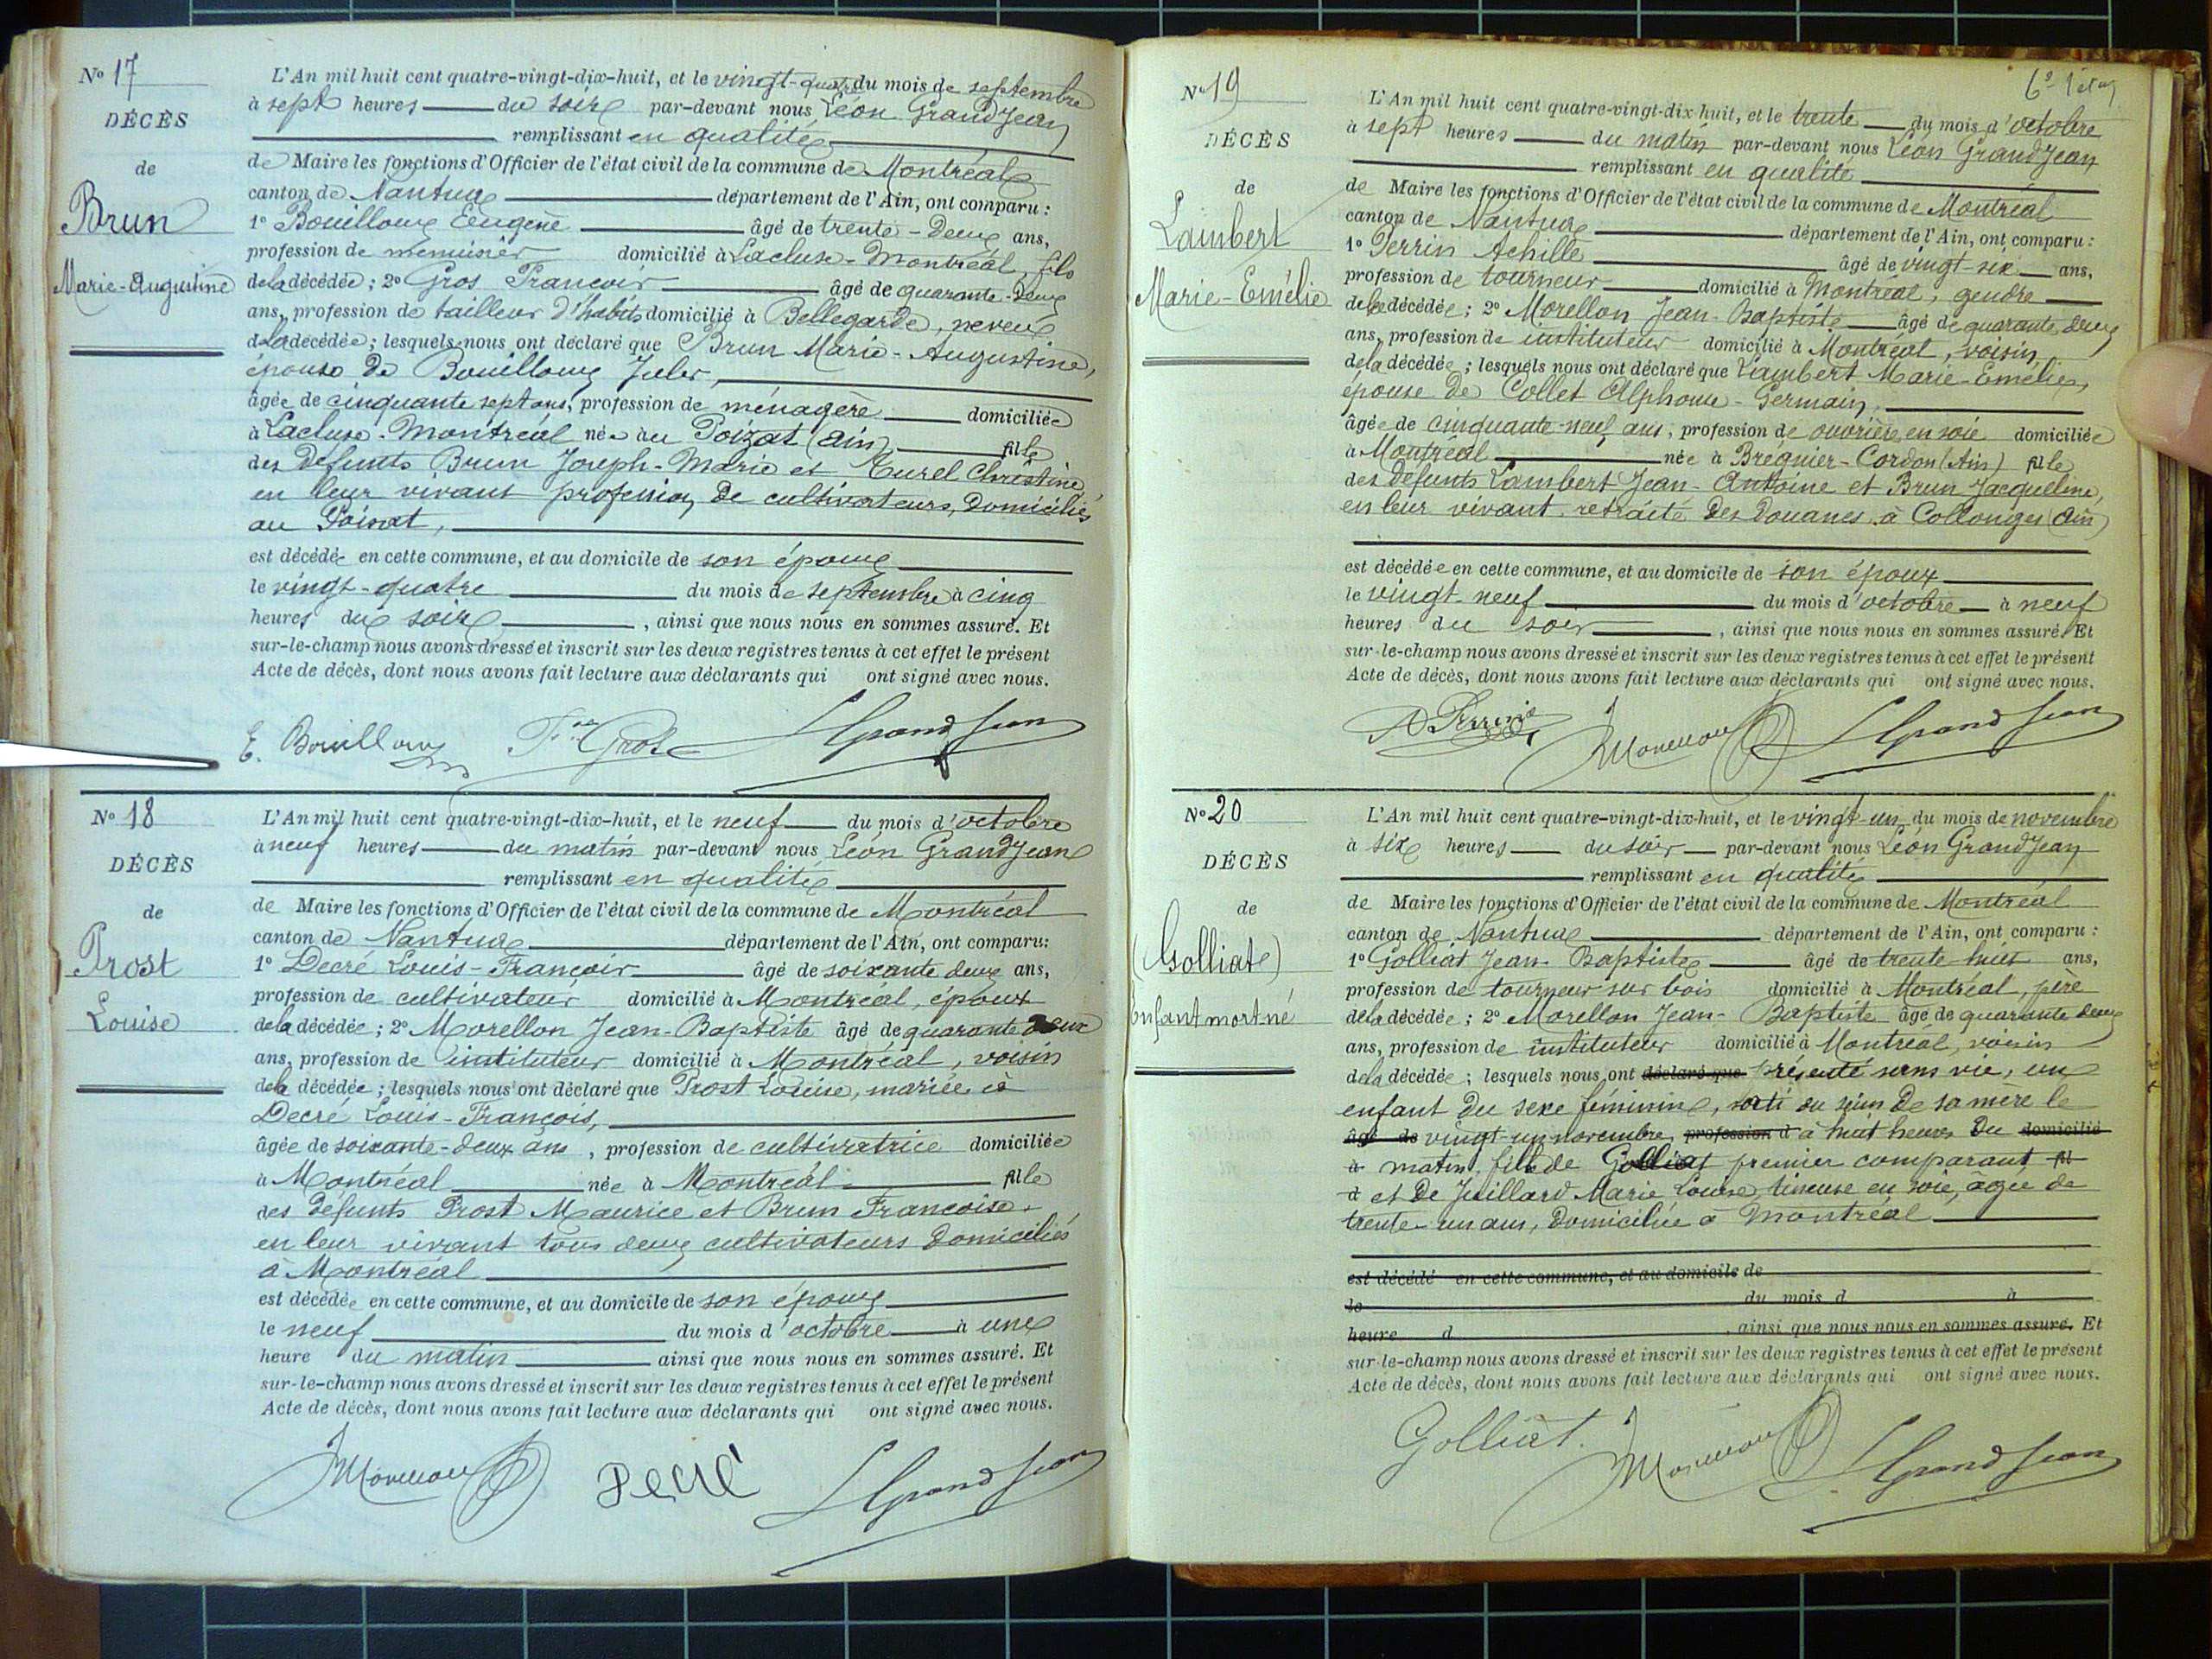 Nº 17
DÉCÈS
de
Brun
Marie-Augustine
L'An mil huit cent quatre-vingt-dix-huit, et le vingt-quatre du mois de septembre
à sept heures du soir par-devant nous Léon Grandjean
remplissant en qualité
de Maire les fonctions d'Officier de l'état civil de la commune de Montréal
canton de Nantua département de l'Ain, ont comparu :
1º Bouilloux Eugène âgé de trente-deux ans,
profession de menuisier domicilié à Lacluse-Montréal, fils
de la décédée ; 2º Gros François âgé de quarante-deux
ans, profession de tailleur d'habits domicilié à Bellegarde, neveu
de la décédée ; lesquels nous ont déclaré que Brun Marie-Augustine,
épouse de Bouilloux Jules,
âgée de cinquante sept ans, profession de ménagère domiciliée
à Lacluse-Montréal née au Poizat (Ain) fille
des défunts Brun Joseph-Marie et Turel Christine
en leur vivant profession de cultivateurs, domiciliés
au Poizat,
est décédée en cette commune, et au domicile de son époux
le vingt-quatre du mois de septembre à cinq
heures du soir, ainsi que nous nous en sommes assuré. Et
sur-le-champ nous avons dressé et inscrit sur les deux registres tenus à cet effet le présent
Acte de décès, dont nous avons fait lecture aux déclarants qui ont signé avec nous.
E. Bouilloux Fois Gros LGrandjean
Nº 18
DÉCÈS
de
Prost
Louise
L'An mil huit cent quatre-vingt-dix-huit, et le neuf du mois d'octobre
à neuf heures du matin par-devant nous Léon Grandjean
remplissant en qualité
de Maire les fonctions d'Officier de l'état civil de la commune de Montréal
canton de Nantua département de l'Ain, ont comparu :
1º Decré Louis-François âgé de soixante deux ans,
profession de cultivateur domicilié à Montréal, époux
de la décédée ; 2º Morellon Jean-Baptiste âgé de quarante deux
ans, profession de instituteur domicilié à Montréal, voisin
de la décédée ; lesquels nous ont déclaré que Prost Louise, mariée à
Decré Louis-François,
âgée de soixante-deux ans, profession de cultivatrice domiciliée
à Montréal née à Montréal fille
des défunts Prost Maurice et Brun Françoise
en leur vivant tous deux cultivateurs domiciliés
à Montréal
est décédée en cette commune, et au domicile de son époux
le neuf du mois d'octobre à une
heure du matin ainsi que nous nous en sommes assuré. Et
sur-le-champ nous avons dressé et inscrit sur les deux registres tenus à cet effet le présent
Acte de décès, dont nous avons fait lecture aux déclarants qui ont signé avec nous.
JMorellon Decré LGrandjean
Nº 19
DÉCÈS
de
Lambert
Marie-Emélie
L'An mil huit cent quatre-vingt-dix-huit, et le trente du mois d'octobre
à sept heures du matin par-devant nous Léon Grandjean
remplissant en qualité
de Maire les fonctions d'Officier de l'état civil de la commune de Montréal
canton de Nantua département de l'Ain, ont comparu :
1º Perrin Achille âgé de vingt-six ans,
profession de tourneur domicilié à Montréal, gendre
de la décédée ; 2º Morellon Jean-Baptiste âgé de quarante deux
ans, profession de instituteur domicilié à Montréal, voisin
de la décédée ; lesquels nous ont déclaré que Lambert Marie-Emélie,
épouse de Collet Alphonse-Germain,
âgée de cinquante-neuf ans, profession de ouvrière en soie domiciliée
à Montréal née à Bregnier-Cordon (Ain) fille
des défunts Lambert Jean-Antoine et Brun Jacqueline,
en leur vivant retraité des Douanes à Collonges (Ain)
est décédée en cette commune, et au domicile de son époux
le vingt-neuf du mois d'octobre à neuf
heures du soir, ainsi que nous nous en sommes assuré. Et
sur-le-champ nous avons dressé et inscrit sur les deux registres tenus à cet effet le présent
Acte de décès, dont nous avons fait lecture aux déclarants qui ont signé avec nous.
A Perrin JMorellon LGrandjean
Nº 20
DÉCÈS
de
(Golliat)
Enfant mort-né
L'An mil huit cent quatre-vingt-dix-huit, et le vingt-un du mois de novembre
à six heures du soir par-devant nous Léon Grandjean
remplissant en qualité
de Maire les fonctions d'Officier de l'état civil de la commune de Montréal
canton de Nantua département de l'Ain, ont comparu :
1º Golliat Jean-Baptiste âgé de trente-huit ans,
profession de tourneur sur bois domicilié à Montréal, père
de la décédée ; 2º Morellon Jean-Baptiste âgé de quarante deux
ans, profession de instituteur domicilié à Montréal, voisin
de la décédée ; lesquels nous ont déclaré que présenté sans vie, un
enfant du sexe féminin, sorti du sein de sa mère le
âgé de vingt-un novembre profession d à huit heures du domicilié
à matin, fille de Golliat premier comparant fil
d et de Juillard Marie Louise, tisseuse en soie, âgée de
trente-un ans, domiciliée à Montréal
est décédé en cette commune, et au domicile de
le du mois d à
heure d , ainsi que nous nous en sommes assuré. Et
sur-le-champ nous avons dressé et inscrit sur les deux registres tenus à cet effet le présent
Acte de décès, dont nous avons fait lecture aux déclarants qui ont signé avec nous.
Golliat. JMorellon LGrandjean